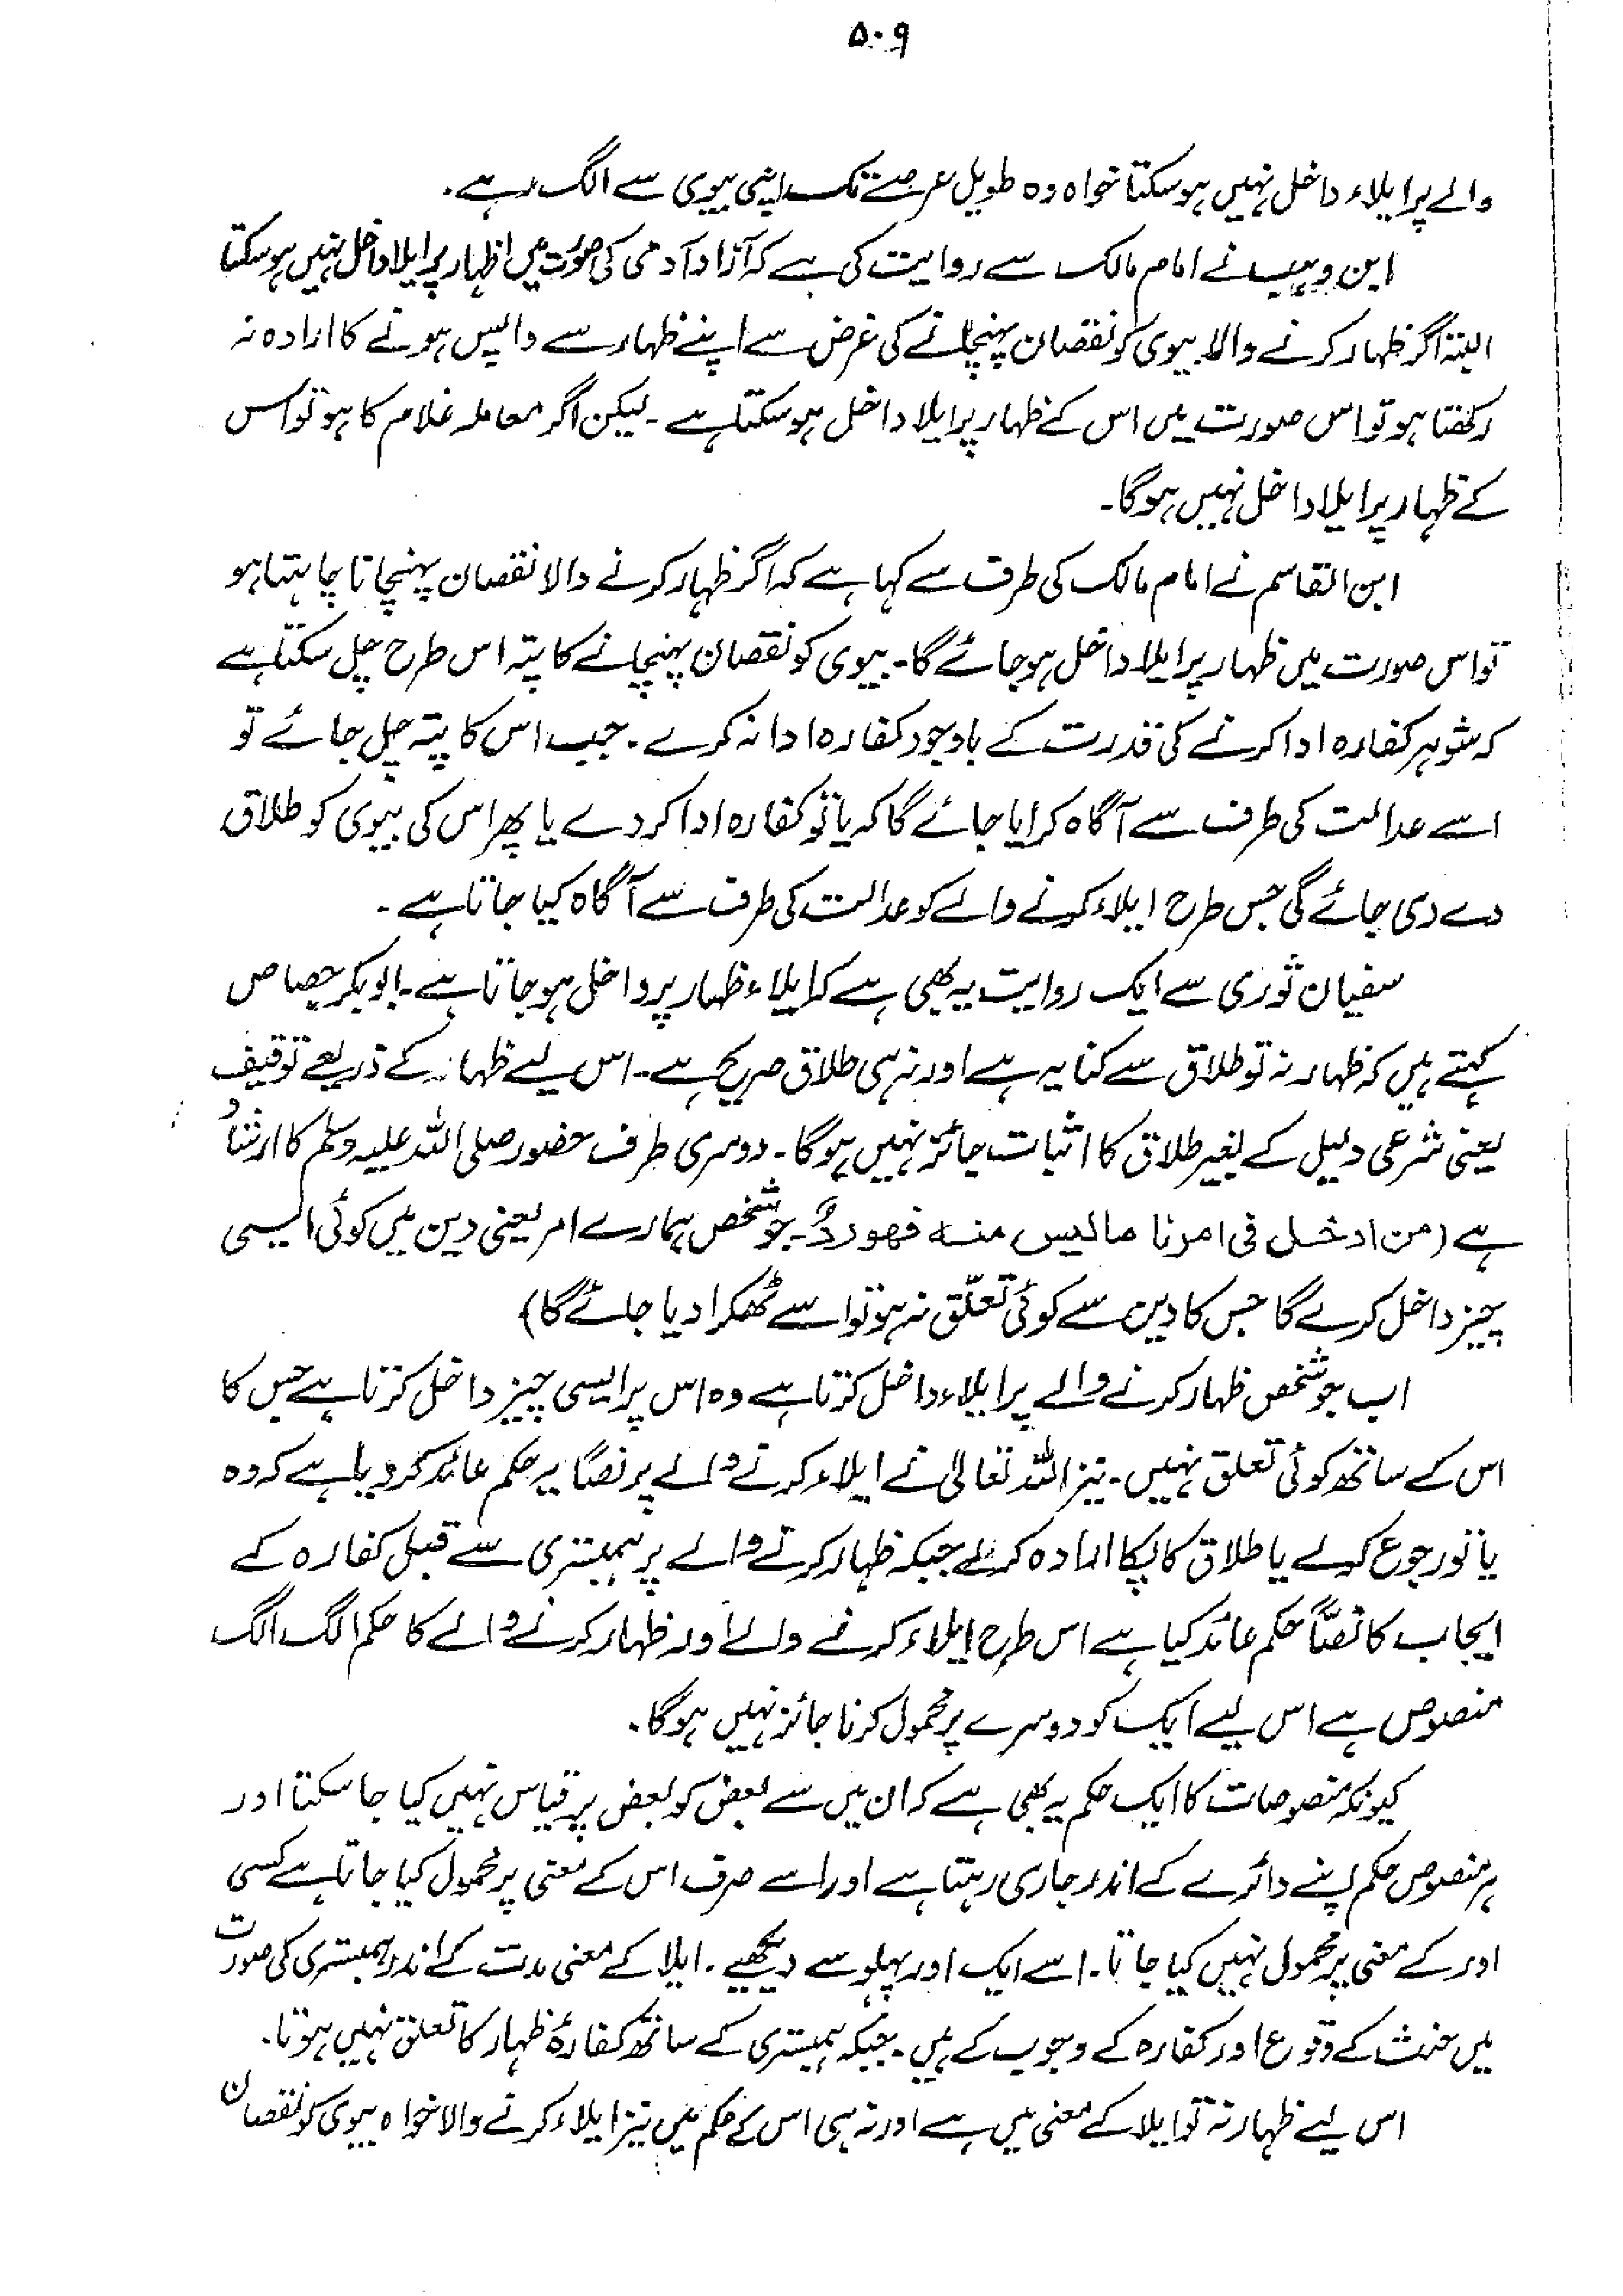 ۵۰۹
والے پر ایلاء داخل نہیں ہوسکتا خواہ وہ طویل عرصے تک اپنی بیوی سے الگ رہے۔
ابن وہب نے امام مالک سے روایت کی ہے کہ آزاد آدمی کی صورت میں اظہار پر ایلا داخل نہیں ہوسکتا
البتہ اگر ظہار کرنے والا بیوی کو نقصان پہنچانے کی غرض سے اپنے ظہار سے واپس ہونے کا ارادہ نہ
رکھتا ہو تو اس صورت میں اس کے ظہار پر ایلا داخل ہوسکتا ہے۔ لیکن اگر معاملہ غلام کا ہو تو اس
کے ظہار پر ایلا داخل نہیں ہوگا۔
ابن القاسم نے امام مالک کی طرف سے کہا ہے کہ اگر ظہار کرنے والا نقصان پہنچانا چاہتا ہو
تو اس صورت میں ظہار پر ایلا داخل ہوجائے گا۔ بیوی کو نقصان پہنچانے کا پتہ اس طرح چل سکتا ہے
کہ شوہر کفارہ ادا کرنے کی قدرت کے باوجود کفارہ ادا نہ کرے۔ جب اس کا پتہ چل جائے تو
اسے عدالت کی طرف سے آگاہ کرایا جائے گا کہ یا تو کفارہ ادا کردے یا پھر اس کی بیوی کو طلاق
دے دی جائے گی جس طرح ایلاء کرنے والے کو عدالت کی طرف سے آگاہ کیا جاتا ہے۔
سفیان ثوری سے ایک روایت یہ بھی ہے کہ ایلاء ظہار پر داخل ہوجاتا ہے۔ ابوبکر جصاص
کہتے ہیں کہ ظہار نہ تو طلاق سے کنایہ ہے اور نہ ہی طلاق صریح ہے۔ اس لیے ظہار کے ذریعے توقیف
یعنی شرعی دلیل کے بغیر طلاق کا اثبات جائز نہیں ہوگا۔ دوسری طرف حضور صلی اللہ علیہ وسلم کا ارشاد
ہے (من ادخل فی امرنا مالیس منہ فھو ردٌّ۔ جو شخص ہمارے امر یعنی دین میں کوئی ایسی
چیز داخل کرے گا جس کا دین سے کوئی تعلّق نہ ہو تو اسے ٹھکرا دیا جائے گا)
اب جو شخص ظہار کرنے والے پر ایلاء داخل کرتا ہے وہ اس پر ایسی چیز داخل کرتا ہے جس کا
اس کے ساتھ کوئی تعلق نہیں۔ نیز اللہ تعالیٰ نے ایلاء کرنے والے پر نصًّا یہ حکم عائد کردیا ہے کہ وہ
یا تو رجوع کرلے یا طلاق کا پکا ارادہ کرلے جبکہ ظہار کرنے والے پر ہمبستری سے قبل کفارہ کے
ایجاب کا نصًّا حکم عائد کیا ہے اس طرح ایلاء کرنے والے اور ظہار کرنے والے کا حکم الگ الگ
منصوص ہے اس لیے ایک کو دوسرے پر محمول کرنا جائز نہیں ہوگا۔
کیونکہ منصوصات کا ایک حکم یہ بھی ہے کہ ان میں سے بعض کو بعض پر قیاس نہیں کیا جا سکتا اور
ہر منصوص حکم اپنے دائرے کے اندر جاری رہتا ہے اور اسے صرف اس کے معنی پر محمول کیا جاتا ہے کسی
اور کے معنی پر محمول نہیں کیا جاتا۔ اسے ایک اور پہلو سے دیکھیے۔ ایلا کے معنی مدت کے اندر ہمبستری کی صورت
میں حنث کے وقوع اور کفارہ کے وجوب کے ہیں۔ جبکہ ہمبستری کے ساتھ کفارۂ ظہار کا تعلق نہیں ہوتا۔
اس لیے ظہار نہ تو ایلا کے معنی میں ہے اور نہ ہی اس کے حکم میں نیز ایلاء کرنے والا خواہ بیوی کو نقصان